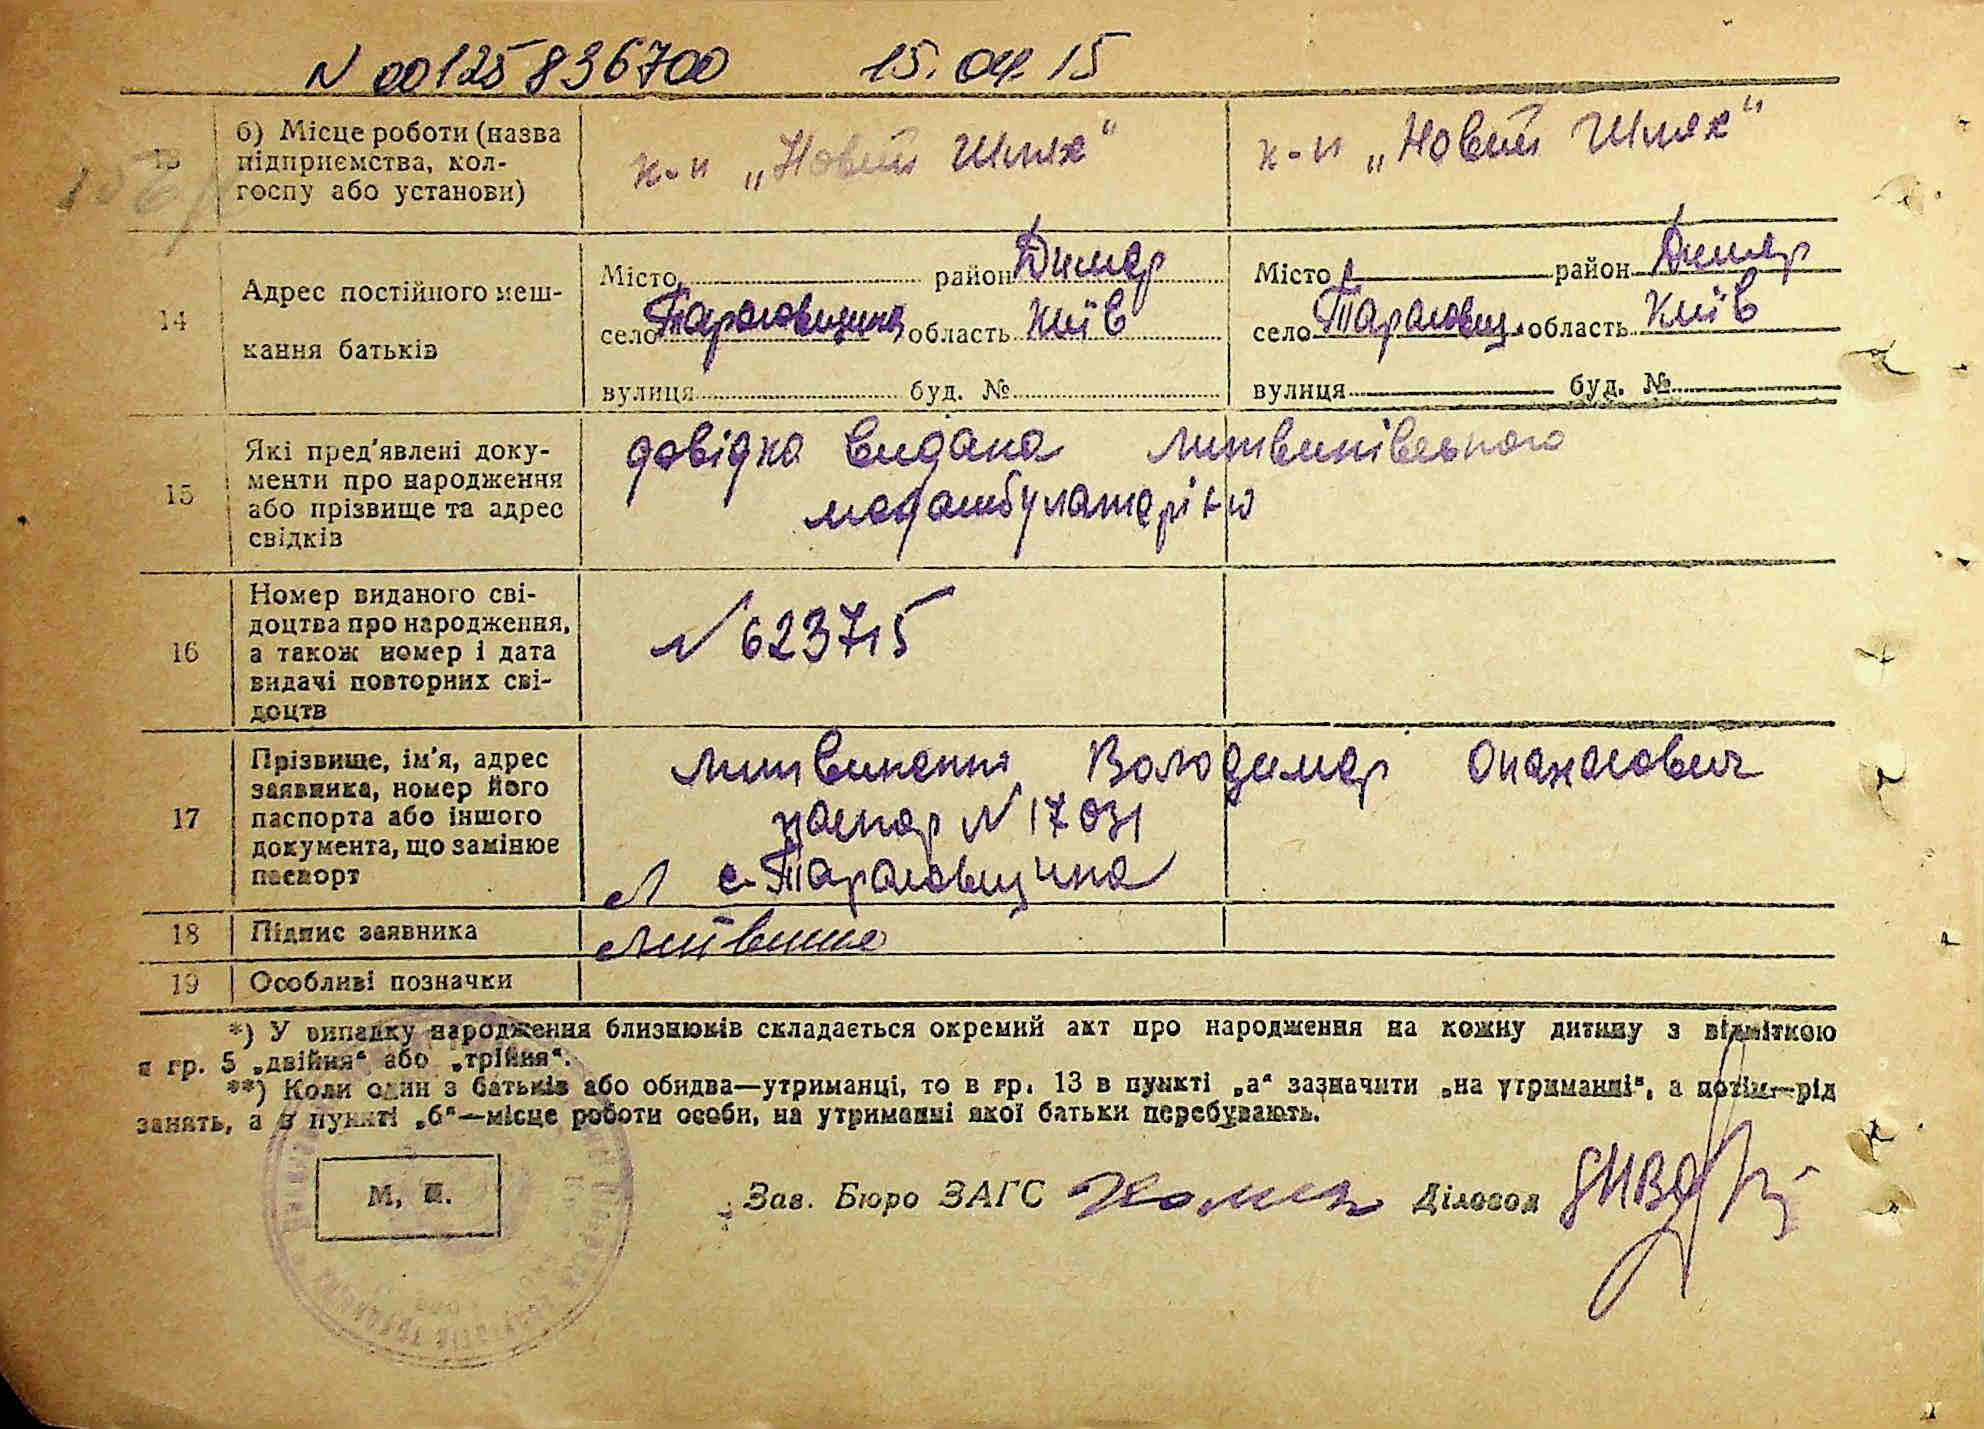 N 00125836700 15.04.15
13 б) Місце роботи (назва
підприємства, кол-
госпу або установи)
к-п „Новий Шлях“ к-п „Новий Шлях“
14 Адрес постійного меш-
кання батьків
Місто район Димер Місто район Димер
село Тарасовщина область Київ село Тарасовщ. область Київ
вулиця буд. № вулиця буд. №
15 Які пред'явлені доку-
менти про народження
або прізвище та адрес
свідків
довідка видана Литвинівського
медамбулаторією
16 Номер виданого сві-
доцтва про народження,
а також номер і дата
видачі повторних сві-
доцтв
N 623715
17 Прізвище, ім'я, адрес
заявника, номер його
паспорта або іншого
документа, що замінює
паспорт
Литвиненко Володимер Опанасович
паспор N 17031
с. Тарасовщина
18 Підпис заявника
Литвинко
19 Особливі позначки
*) У випадку народження близнюків складається окремий акт про народження на кожну дитину з відміткою
в гр. 5 „двійня“ або „трійня“.
**) Коли один з батьків або обидва—утриманці, то в гр. 13 в пункті „а“ зазначити „на утриманні“, а потім—рід
занять, а в пункті „б“—місце роботи особи, на утриманні якої батьки перебувають.
М. П.
Зав. Бюро ЗАГС Діловод